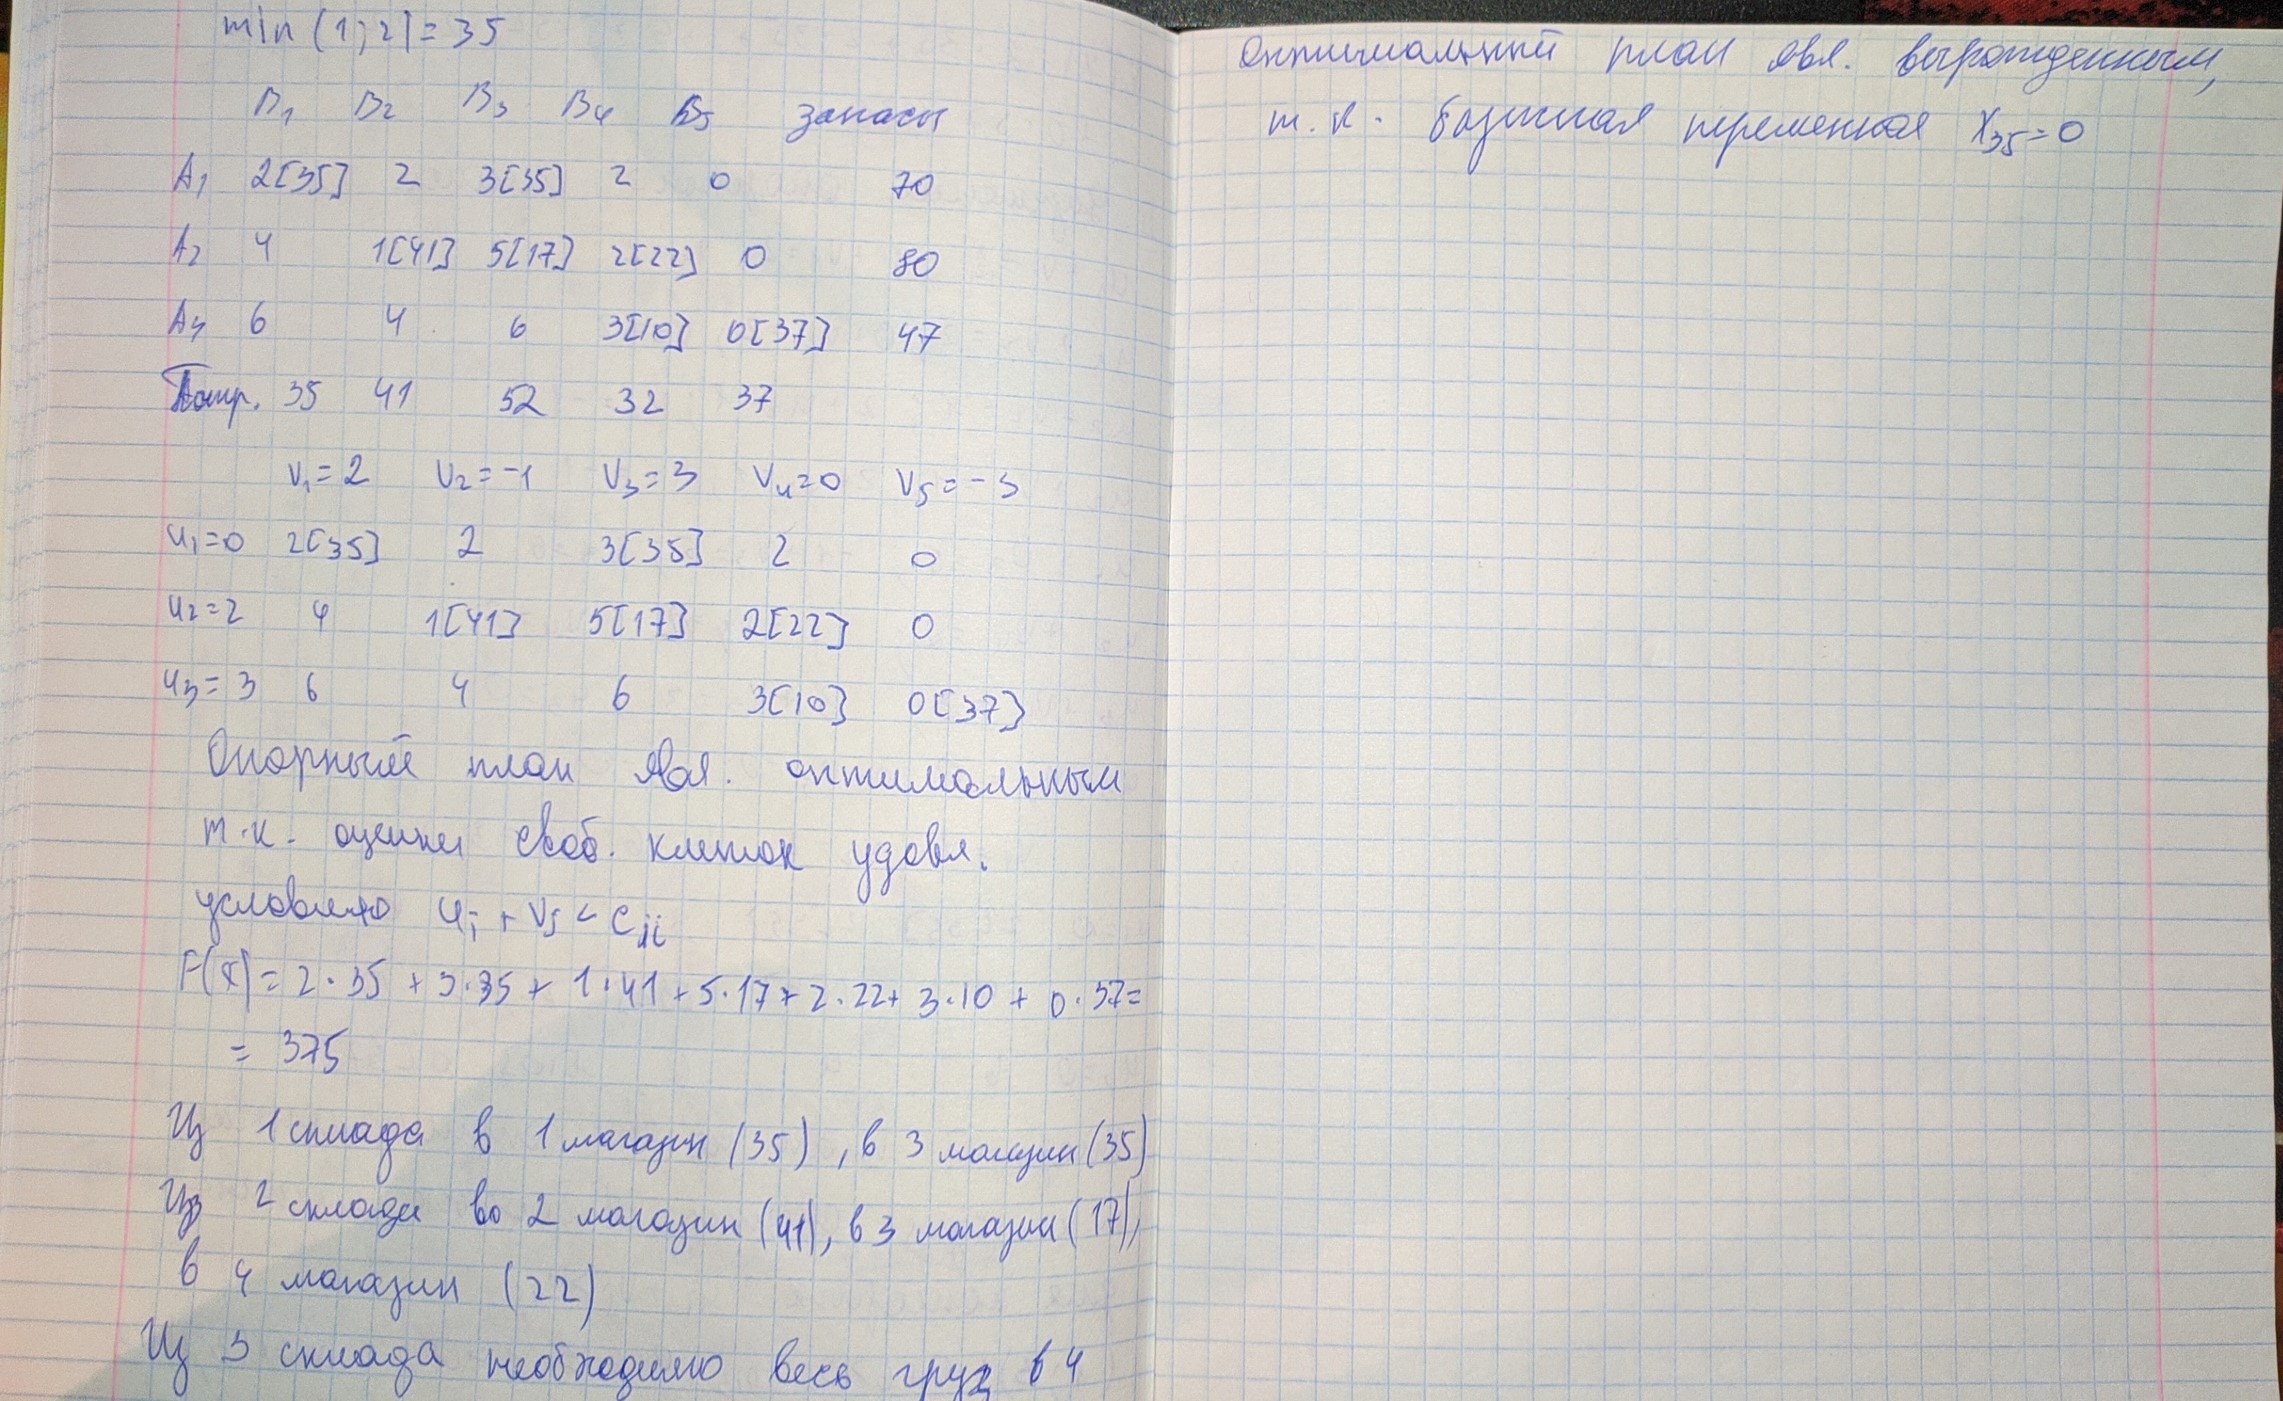 min (1; 2) = 35
B1 B2 B3 B4 B5 запасы
A1 2[35] 2 3[35] 2 0 70
A2 4 1[41] 5[17] 2[22] 0 80
A3 6 4 6 3[10] 0[37] 47
Потр. 35 41 52 32 37
V1=2 V2=-1 V3=3 V4=0 V5=-3
u1=0 2[35] 2 3[35] 2 0
u2=2 4 1[41] 5[17] 2[22] 0
u3=3 6 4 6 3[10] 0[37]
Опорный план явл. оптимальным
т.к. оценки своб. клеток удовл.
условию ui + vj < cij
F(x) = 2·35 + 3·35 + 1·41 + 5·17 + 2·22 + 3·10 + 0·37 =
= 375
Из 1 склада в 1 магазин (35), в 3 магазин (35)
Из 2 склада во 2 магазин (41), в 3 магазин (17),
в 4 магазин (22)
Из 3 склада необходимо весь груз в 4
Оптимальный план явл. вырожденным,
т.к. базисная переменная x35=0